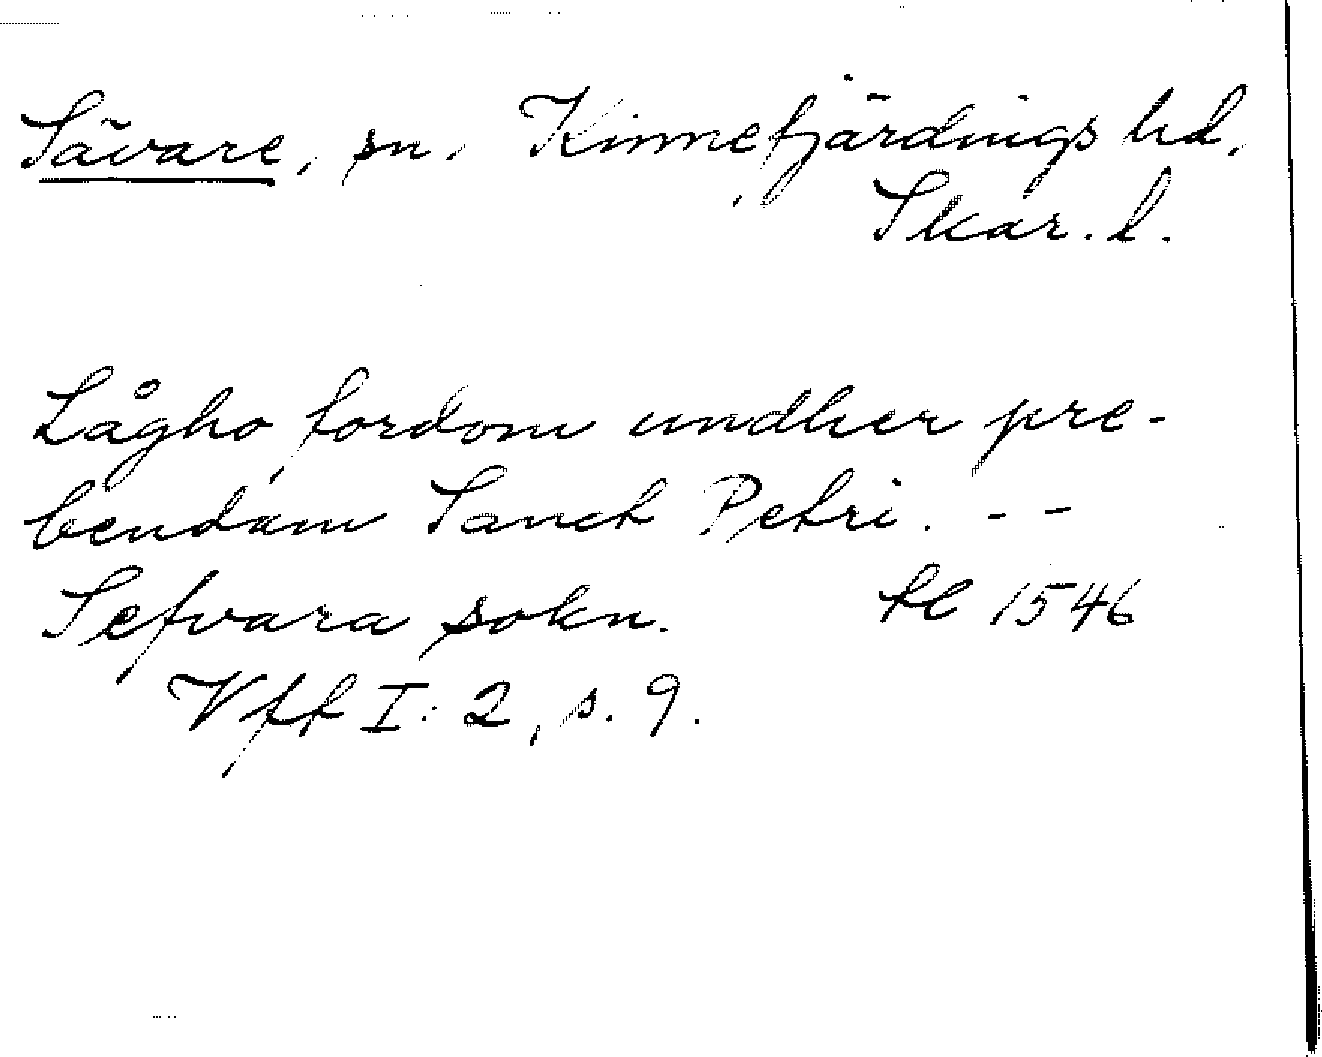 Sävare, sn, Kinnefjärdings hd,
Skar. l.
Lågho fordom undher pre-
bendam Sanct Petri. - -
Sefvara sokn. 1546
Vff I: 2, s. 9.